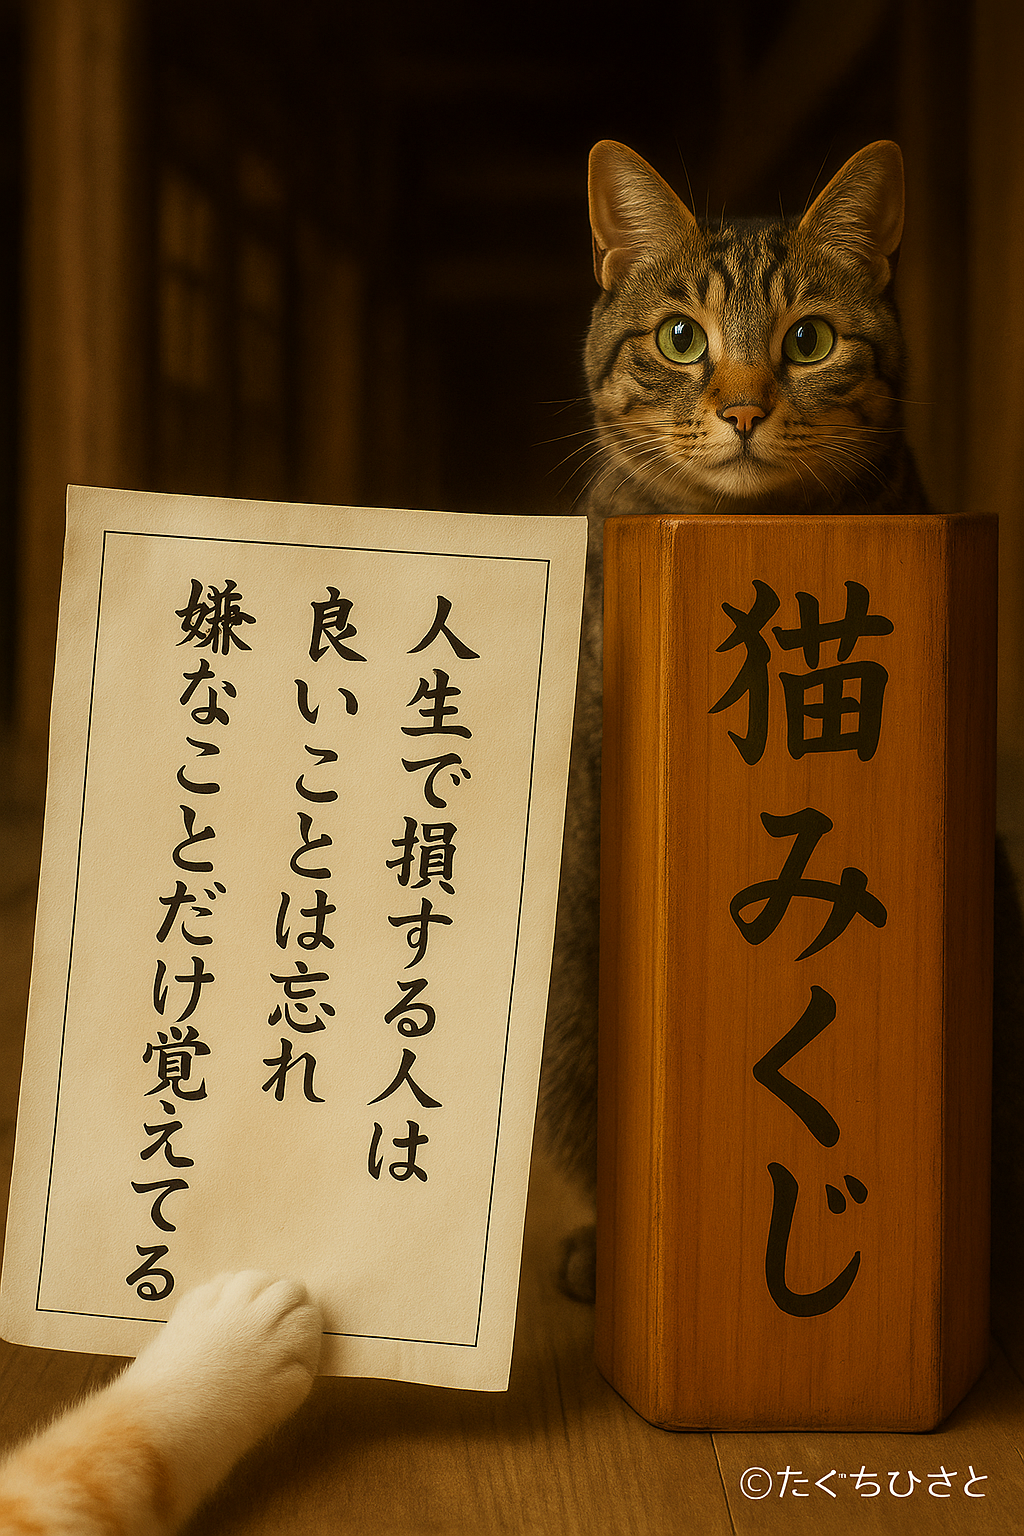 人生で損する人は
良いことは忘れ
嫌なことだけ覚えてる
猫みくじ
©たぐちひさと